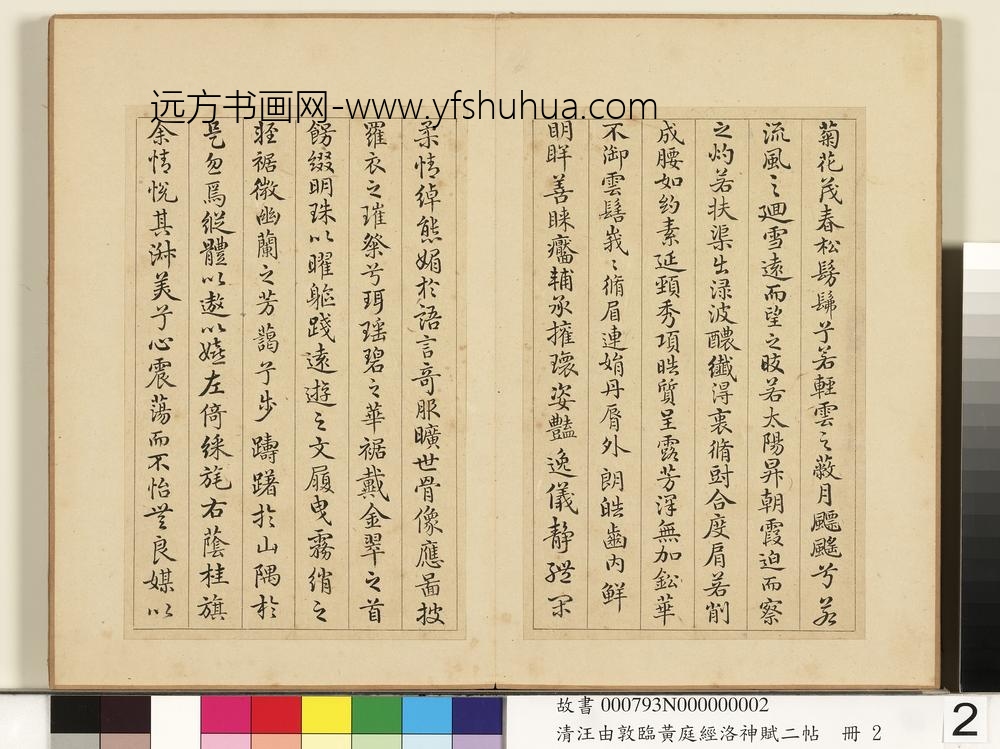 远方书画网-www.yfshuhua.com
菊花茂春松髣髴兮若輕雲之蔽月飄颻兮若
流風之迴雪遠而望之皎若太陽昇朝霞迫而察
之灼若扶渠出淥波醲纖得衷脩短合度肩若削
成腰如約素延頸秀項皓質呈露芳澤無加鈆華
不御雲髻峩〻脩眉連娟丹脣外朗皓齒內鮮
明眸善睞靨輔承權瓌姿豔逸儀静體閑
柔情綽態媚於語言奇服曠世骨像應啚披
羅衣之璀粲兮珥瑶碧之華裾戴金翠之首
餝綴明珠以曜軀踐遠遊之文履曳霧綃之
輕裾微幽蘭之芳藹兮步躊躇於山隅於
是忽焉縱體以遨以嬉左倚綵旄右蔭桂旗
余情悅其淋美兮心震蕩而不怡無良媒以
故書 000793N000000002
清汪由敦臨黃庭經洛神賦二帖 冊 2
2